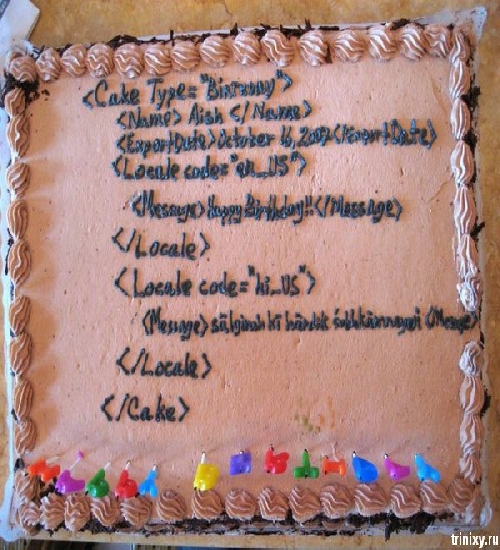 <Cake Type="Birthday">
<Name> Aish </Name>
<ExportDate>October 16, 2007</ExportDate>
<Locale code="en_US">
<Message>Happy Birthday!!</Message>
</Locale>
<Locale code="hi_US">
<Message> sālgirah kī hārdik śubhkāmnayeṅ </Message>
</Locale>
</Cake>
HAPPY BIRTHDAY
trinixy.ru